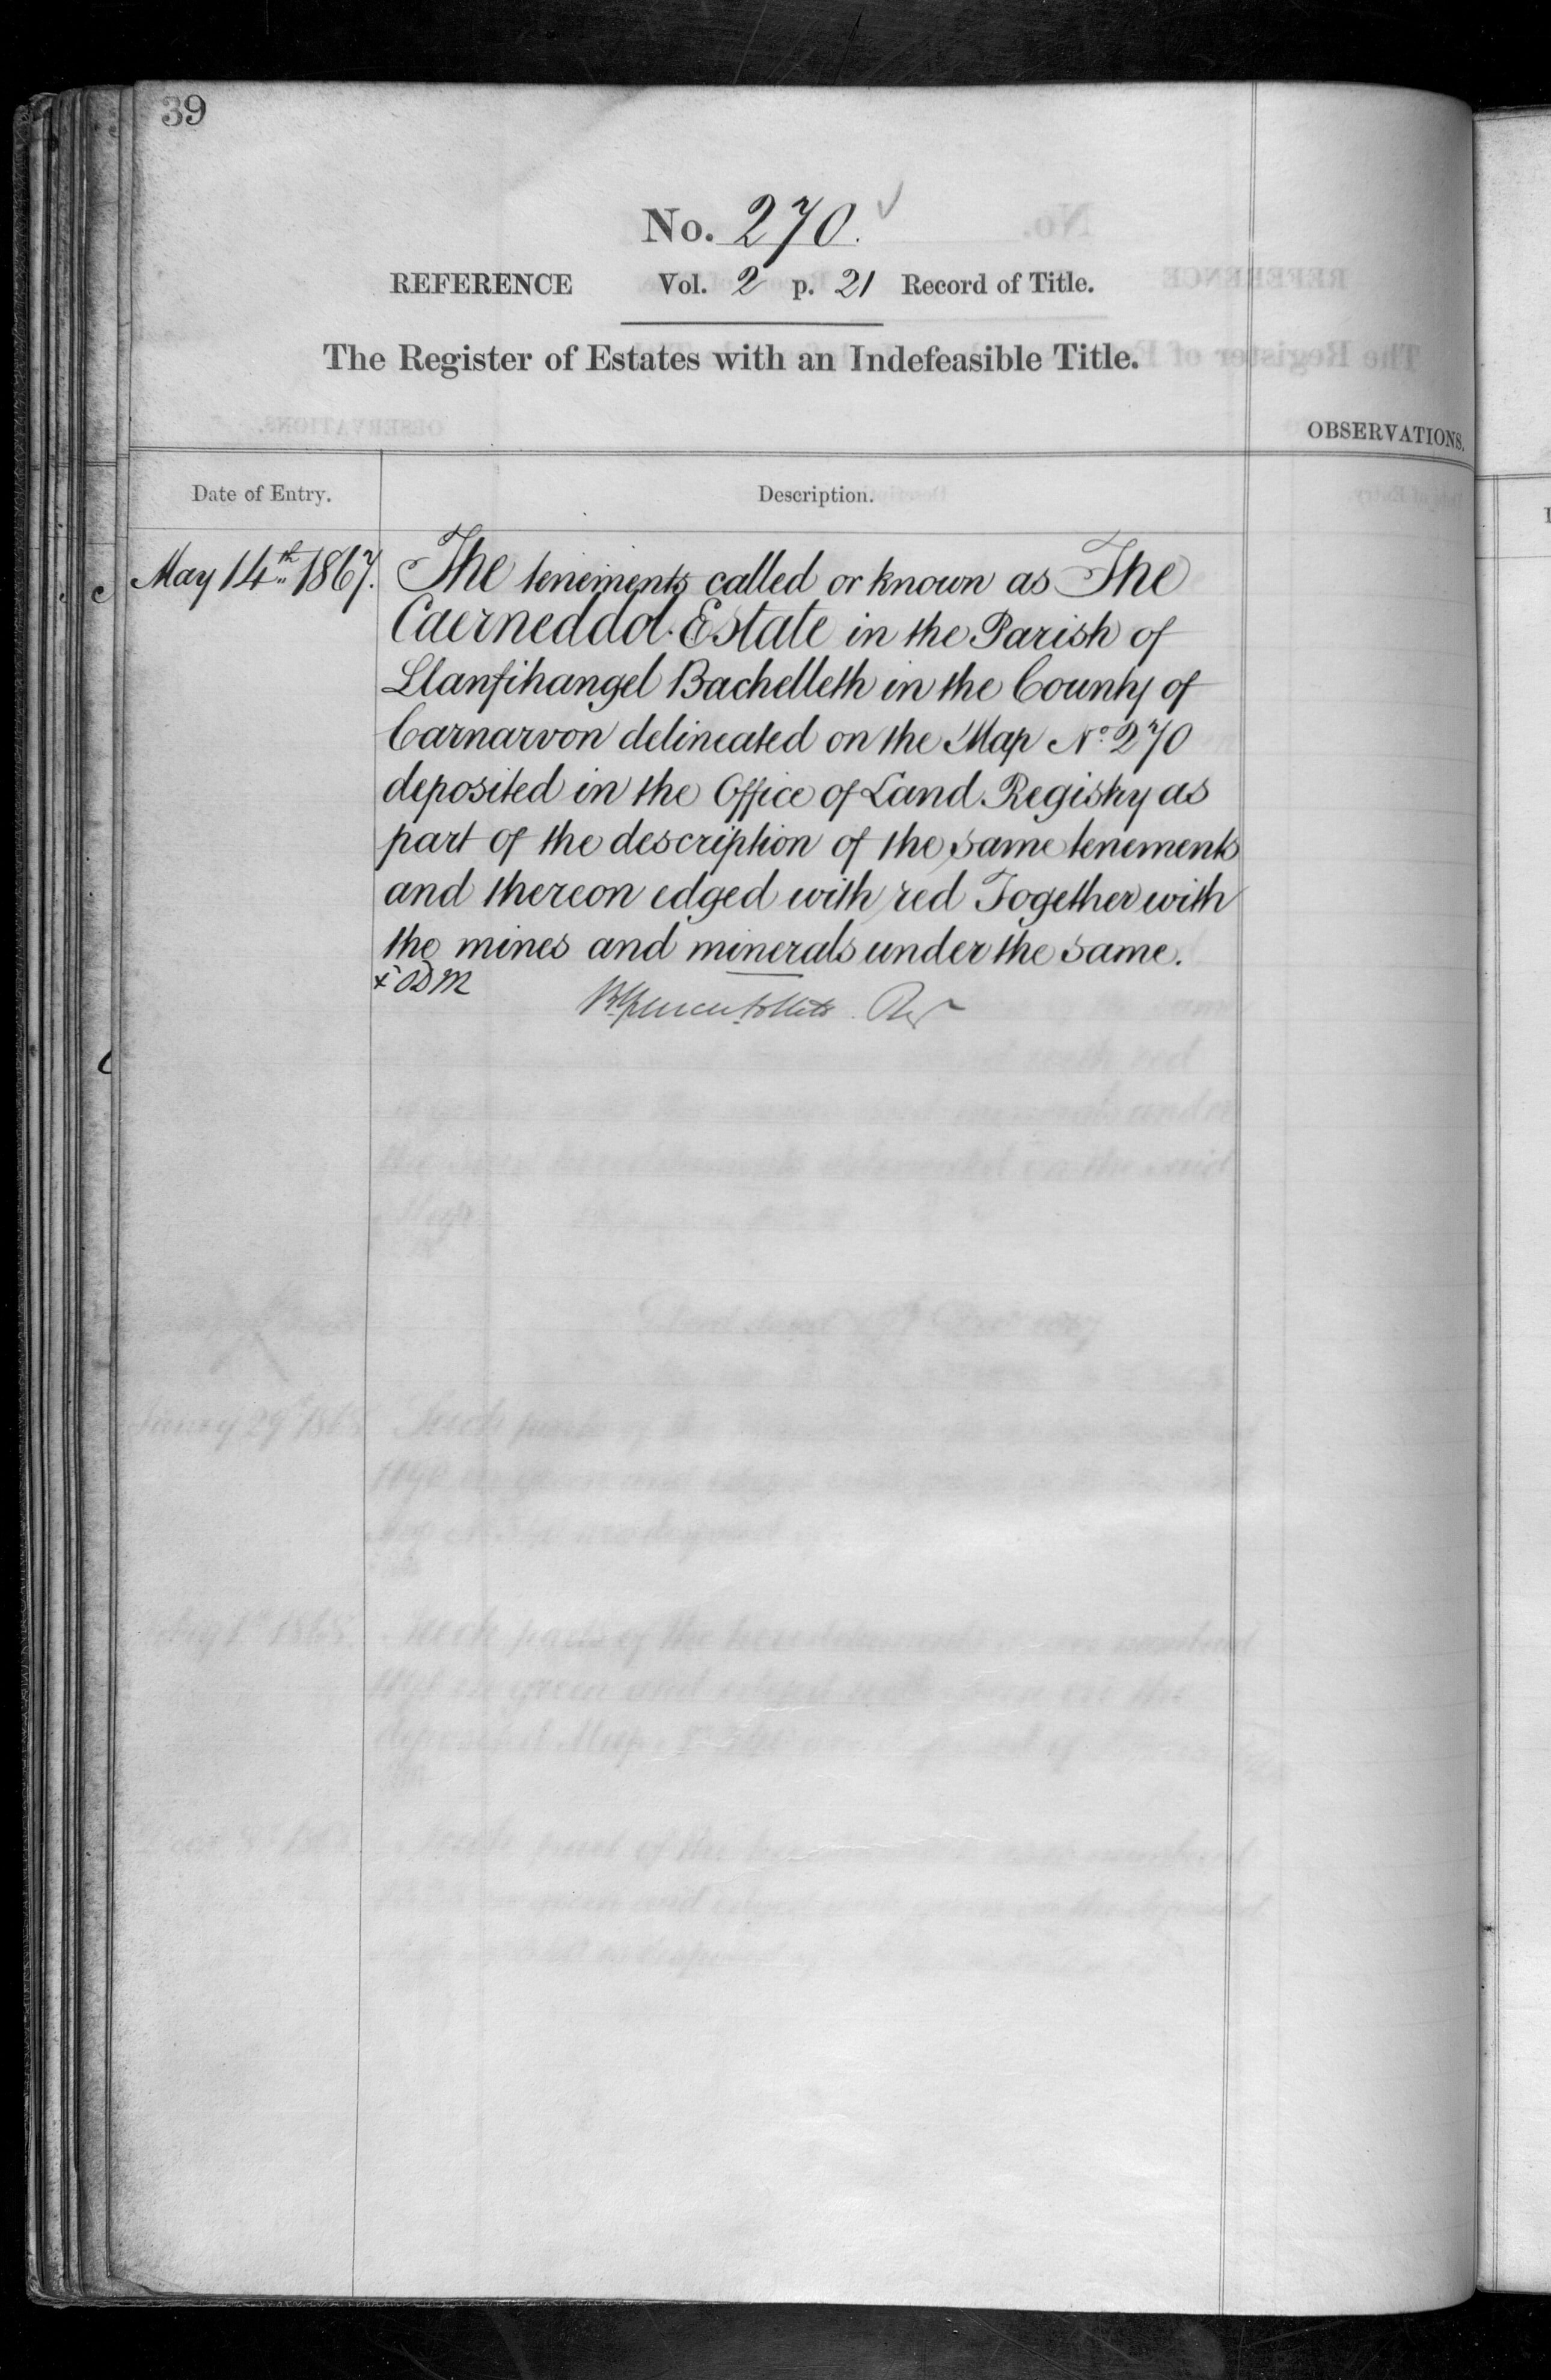 39
No. 270.
REFERENCE Vol. 2 p. 21 Record of Title.
The Register of Estates with an Indefeasible Title.
OBSERVATIONS.
Date of Entry. Description.
May 14th 1867. The tenements called or known as The
Caerneddol Estate in the Parish of
Llanfihangel Bachelleth in the County of
Carnarvon delineated on the Map No 270
deposited in the Office of Land Registry as
part of the description of the same tenements
and thereon edged with red Together with
the mines and minerals under the same.